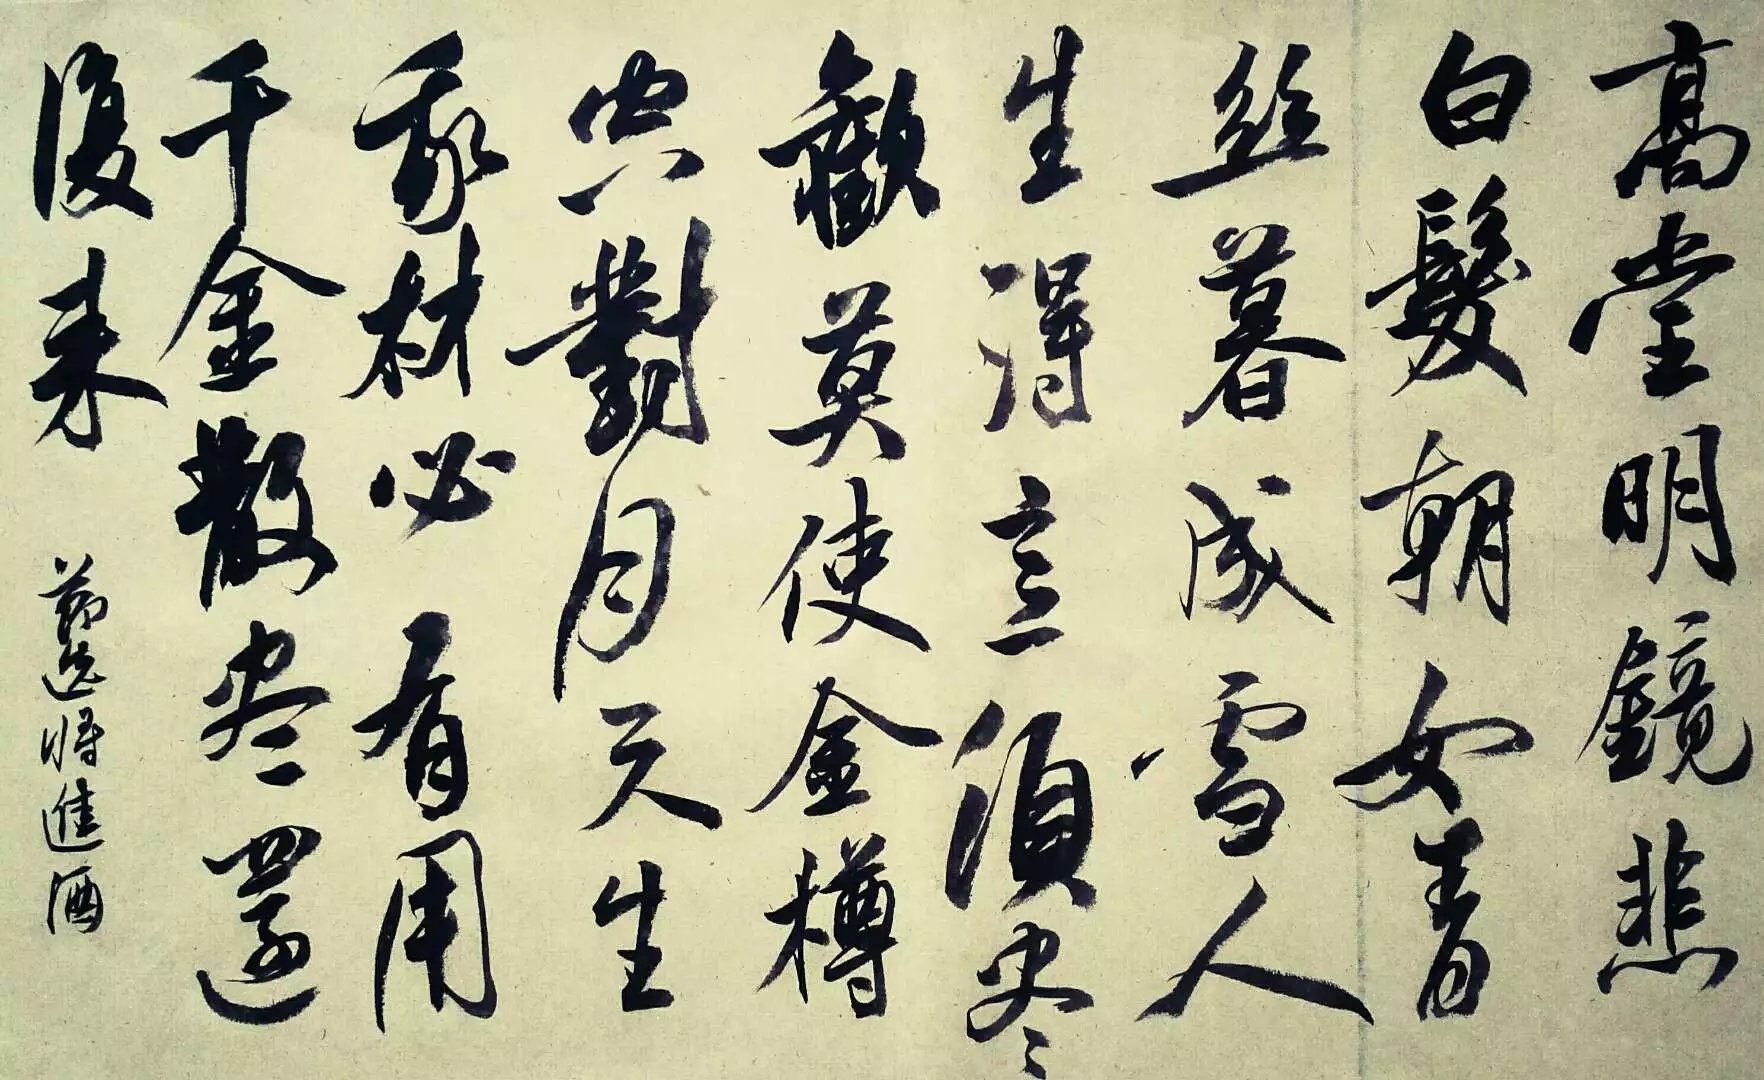 高堂明鏡悲
白髮朝如青
丝暮成雪人
生得意須尽
歡莫使金樽
空對月天生
我材必有用
千金散尽還
復来
節选将進酒